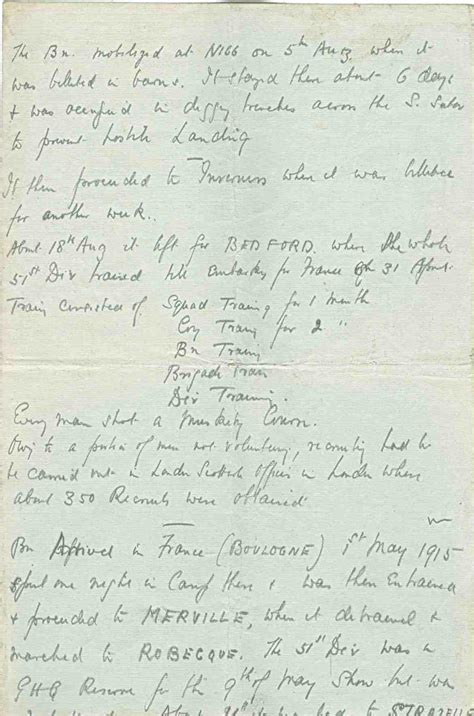 The Bn. mobilized at NIGG on 5th Aug, when it
was billeted in barns. It stayed there about 6 days
& was occupied in digging trenches across the S. Sutor
to prevent hostile Landing
It then proceeded to Inverness where it was billeted
for another week..
About 18th Aug it left for BEDFORD. where the whole
51st Div trained till Embarking for France on 31 April.
Train consisted of Squad Training for 1 month
Coy Traing for 2 "
Bn Traing
Brigade Train
Div Training.
Every man shot a Musketry Course.
Owing to a portion of men not volunteering, recruiting had to
be carried out in London Scottish Offices in London where
about 350 Recruits were obtained
Bn Arrived in France (BOULOGNE) 1st May 1915
spent one night in Camp there & was then Entrained
& proceeded to MERVILLE, when it detrained &
marched to ROBECQUE. The 51st Div was in
GHQ Reserve for the 9th of May Show but was
About